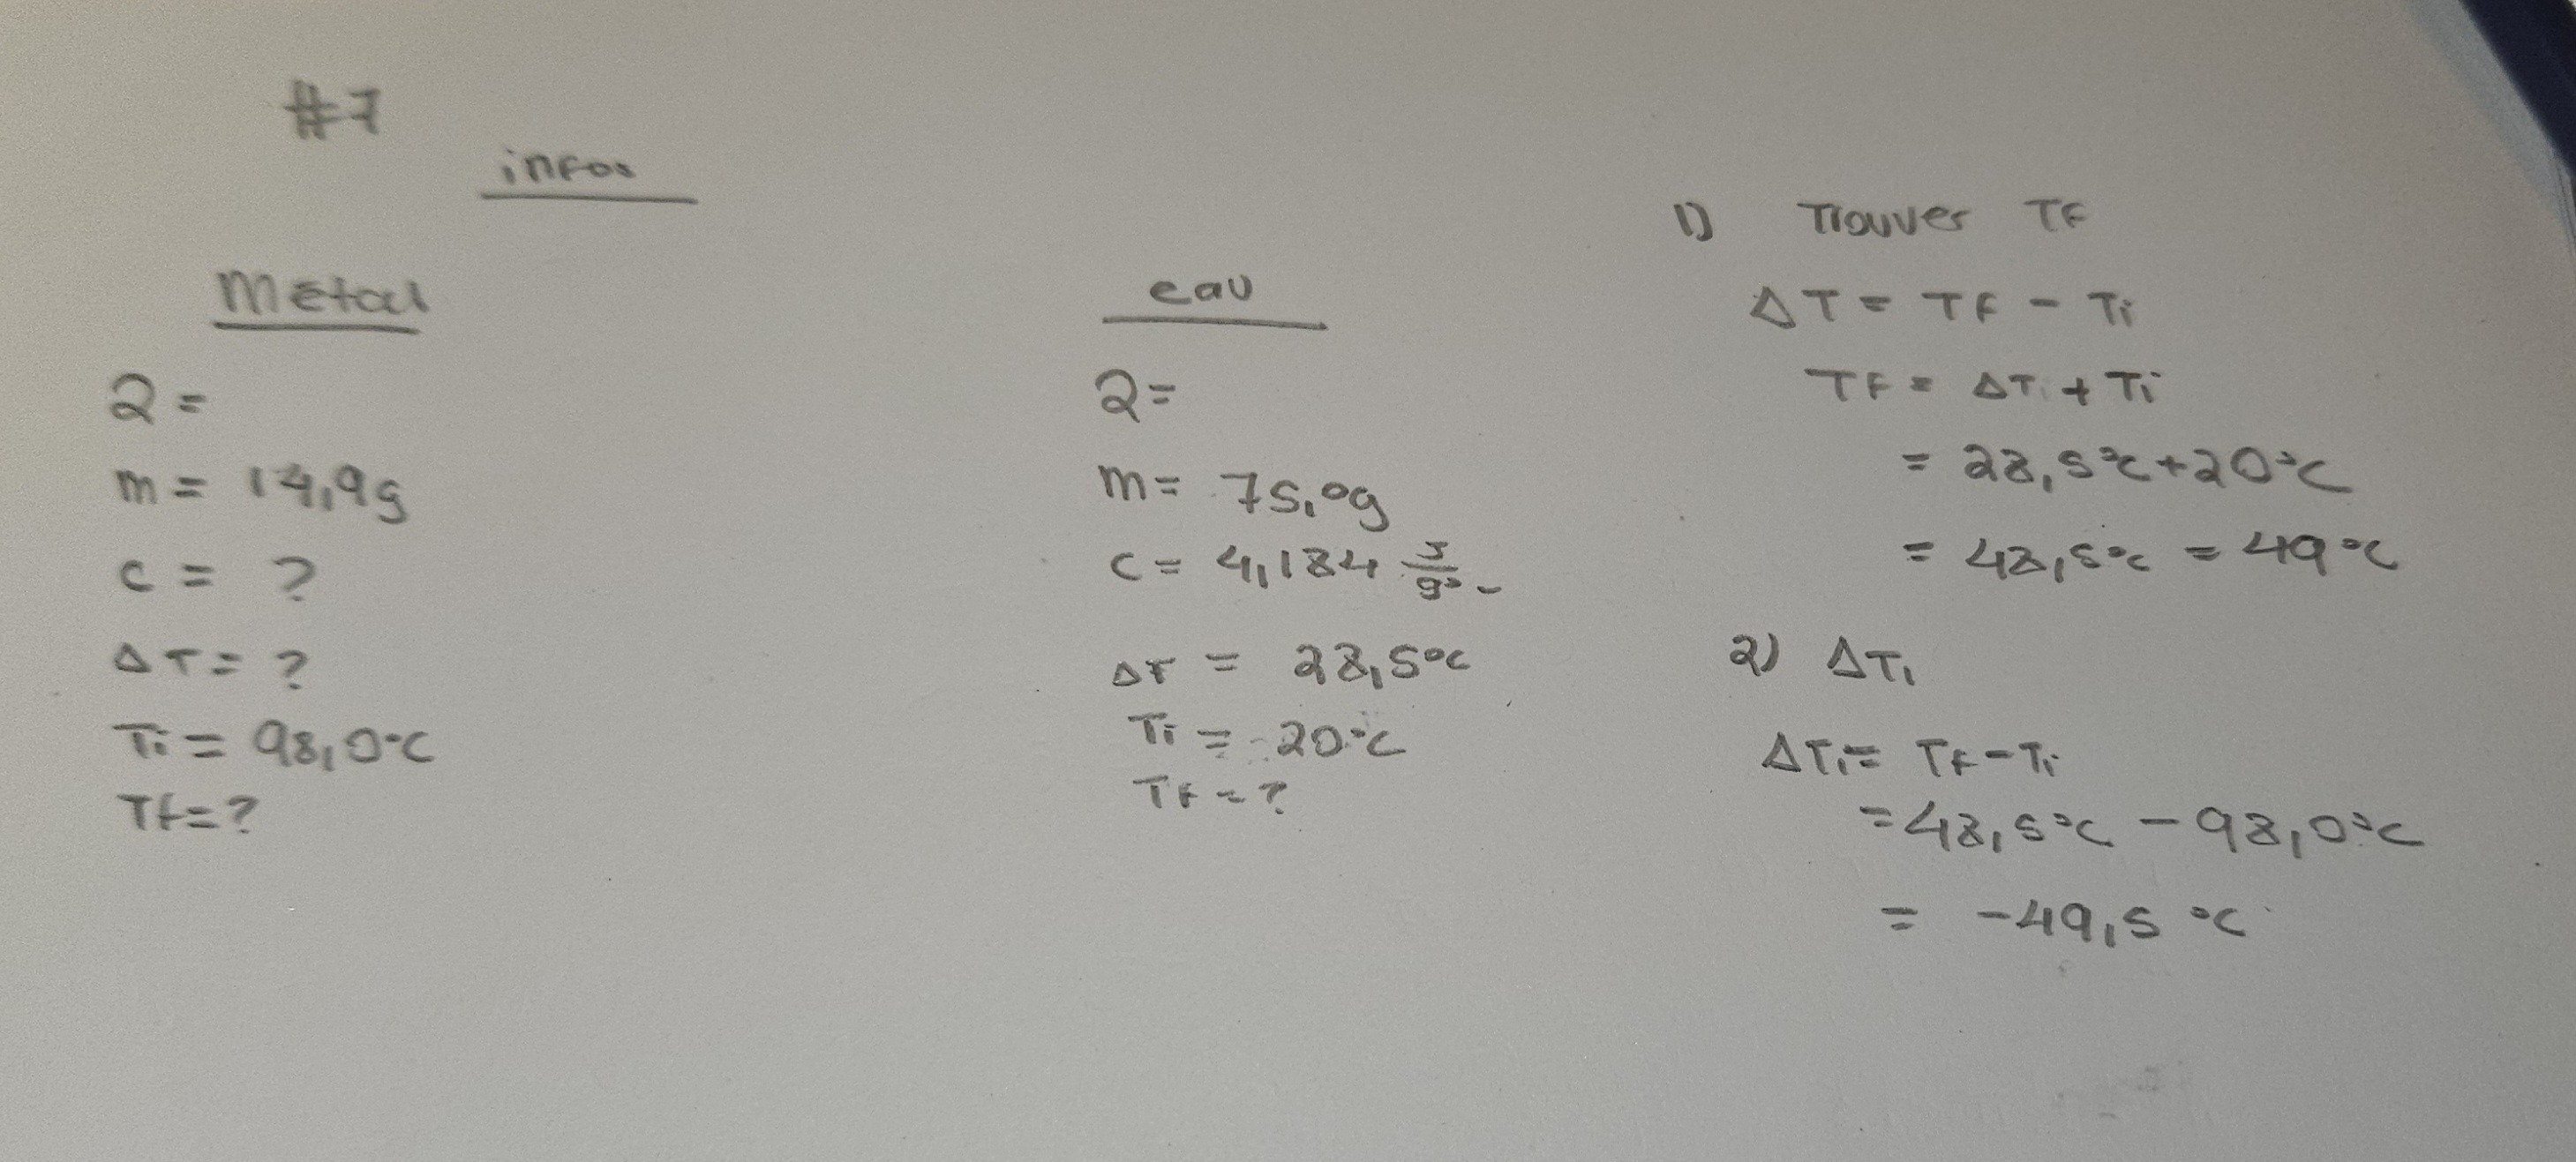 #7
infos
Métal
Q =
m = 14,9g
c = ?
ΔT = ?
Ti = 98,0°C
Tf = ?
eau
Q =
m = 75,0g
c = 4,184 J/g°
ΔT = 28,5°C
Ti = 20°C
Tf = ?
1) Trouver TF
ΔT = TF - Ti
TF = ΔTi + Ti
= 28,5°C + 20°C
= 48,5°C = 49°C
2) ΔTi
ΔTi = TF - Ti
= 48,5°C - 98,0°C
= -49,5 °C